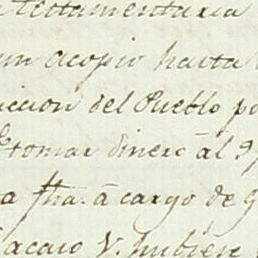 testamentaria
un acopio hasta
uccion del Pueblo po
tomar dinero á al 9
a fha. á cargo de
acaro V. hubiere